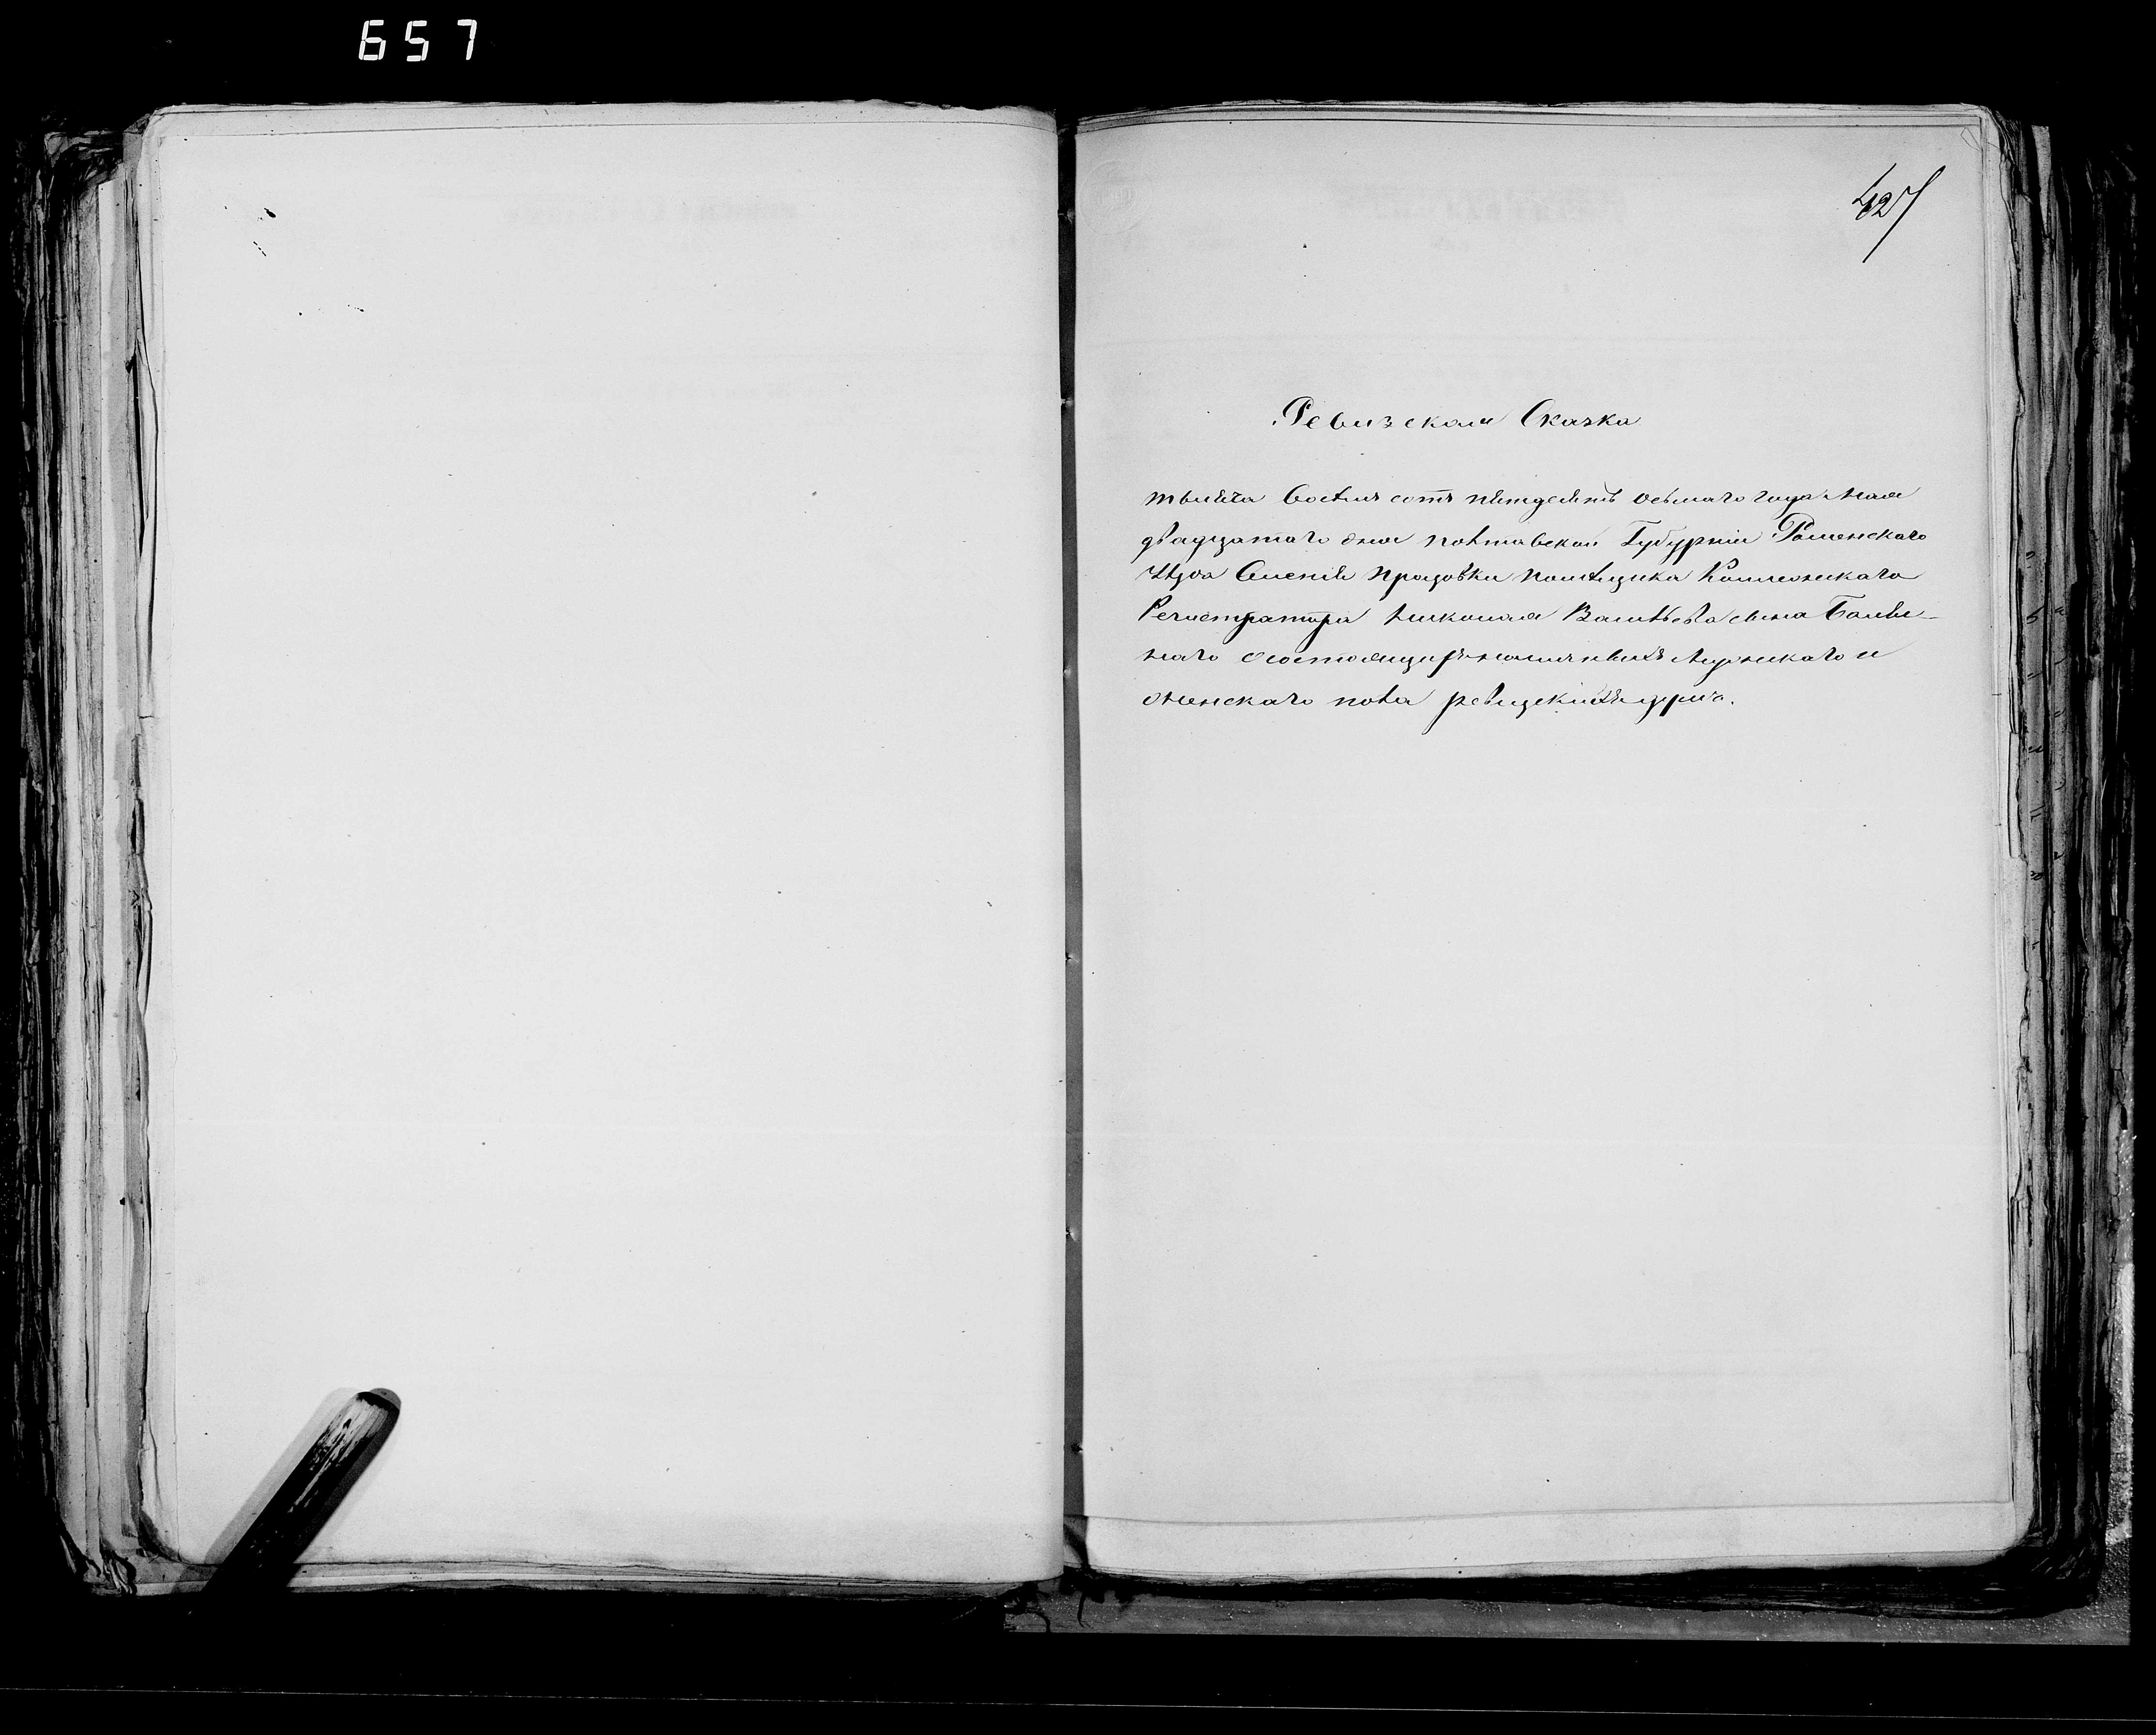 657
427
Ревизская Сказка
тысяча Восемъ сотъ пятдесятъ осьмаго года Мая
двадцатаго дня полтавской Губурніи Роменскаго
уезда Пращовки помещика Колежскаго
Регистратора Николая Василъева сына
наго о состоящихъ мужскаго и
женскаго пола ревизскихъ